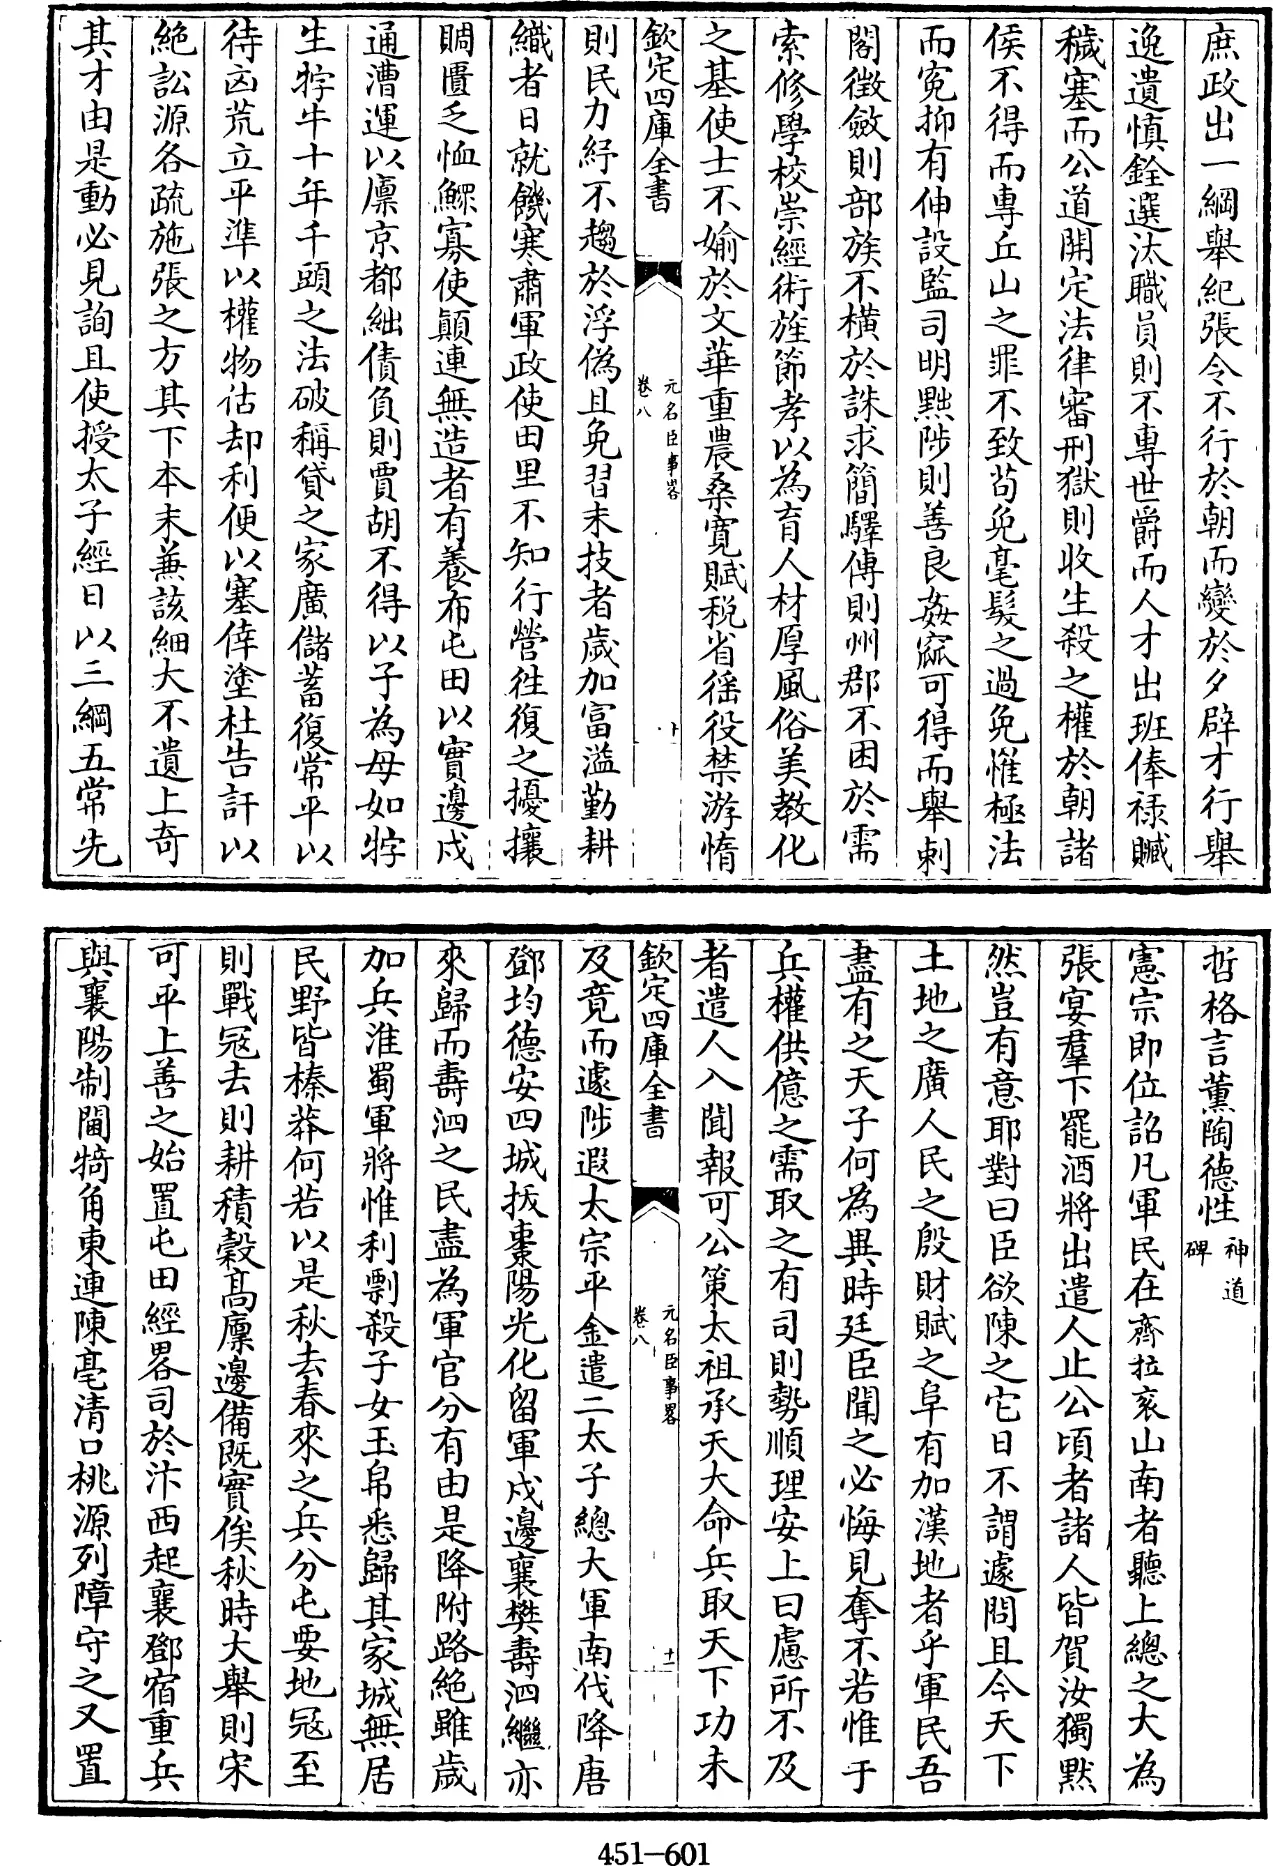 庶政出一綱舉紀張令不行於朝而變於夕辟才行舉
逸遺慎銓選汰職員則不專世爵而人才出班俸禄贓
穢塞而公道開定法律審刑獄則收生殺之權於朝諸
侯不得而專丘山之罪不致茍免毫髮之過免懼極法
而寃抑有伸設監司明黜陟則善良姦窳可得而舉刺
閣徵斂則部族不横於誅求簡驛傳則州郡不困於需
索修學校崇經術旌節孝以為育人材厚風俗美教化
之基使士不媮於文華重農桑寛賦税省徭役禁游惰
欽定四庫全書
元名臣事畧
卷八
十
則民力紓不趨於浮偽且免習末技者歳加富溢勤耕
織者日就饑寒肅軍政使田里不知行營徃復之擾攘
賙匱乏恤鰥寡使顛連無造者有養布屯田以實邊戍
通漕運以廩京都絀債負則賈胡不得以子為母如牸
生牸牛十年千頭之法破稱貸之家廣儲蓄復常平以
待凶荒立平準以權物估却利便以塞倖塗杜告訐以
絶訟源各疏施張之方其下本末兼該細大不遺上奇
其才由是動必見詢且使授太子經日以三綱五常先
哲格言薰陶德性神道碑
憲宗即位詔凡軍民在齊拉衮山南者聽上總之大為
張宴羣下罷酒將出遣人止公頃者諸人皆賀汝獨黙
然豈有意耶對曰臣欲陳之它日不謂遽問且今天下
土地之廣人民之殷財賦之阜有加漢地者乎軍民吾
盡有之天子何為異時廷臣聞之必悔見奪不若惟于
兵權供億之需取之有司則勢順理安上曰慮所不及
者遣人入聞報可公策太祖承天大命兵取天下功未
欽定四庫全書
元名臣事畧
卷八
十一
及竟而遽陟遐太宗平金遣二太子總大軍南伐降唐
鄧均德安四城拔棗陽光化留軍戍邊襄樊壽泗繼亦
來歸而壽泗之民盡為軍官分有由是降附路絶雖歳
加兵淮蜀軍將惟利剽殺子女玉帛悉歸其家城無居
民野皆榛莽何若以是秋去春來之兵分屯要地冦至
則戰冦去則耕積穀髙廩邊備既實俟秋時大舉則宋
可平上善之始置屯田經畧司於汴西起襄鄧宿重兵
與襄陽制閫犄角東連陳亳清口桃源列障守之又置
451-601